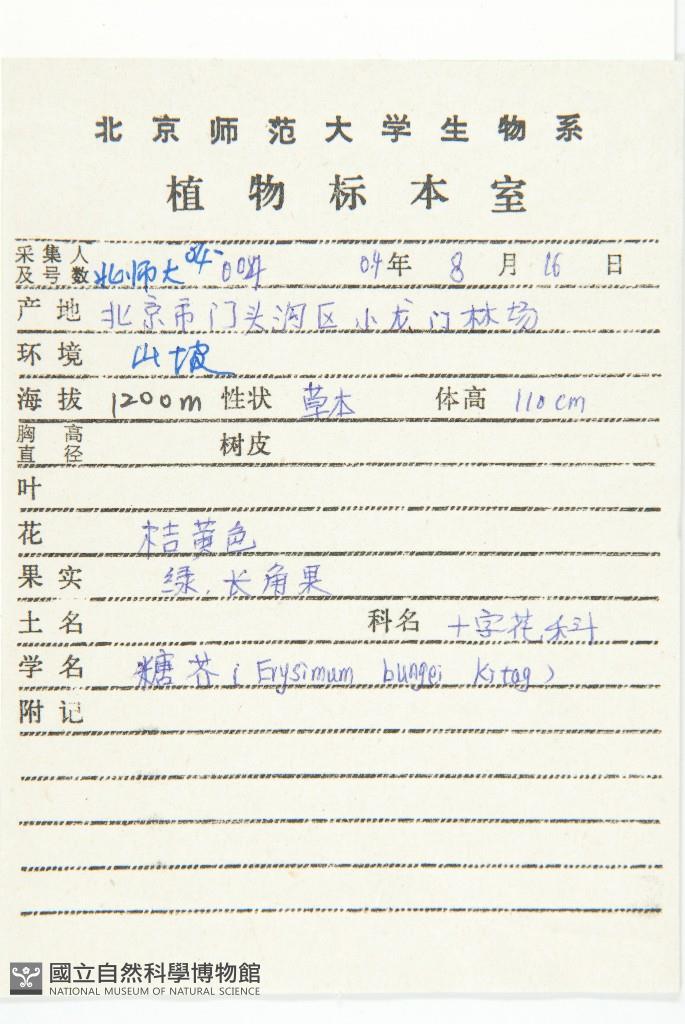 北京师范大学生物系
植物标本室
采集人及号数 北师大04-004 04年 8 月 16 日
产地 北京市门头沟区小龙门林场
环境 山坡
海拔 1200m 性状 草本 体高 110cm
胸高直径 树皮
叶
花 桔黄色
果实 绿,长角果
土名 科名 十字花科
学名 糖芥(Erysimum bungei Kitag)
附记
國立自然科學博物館
NATIONAL MUSEUM OF NATURAL SCIENCE